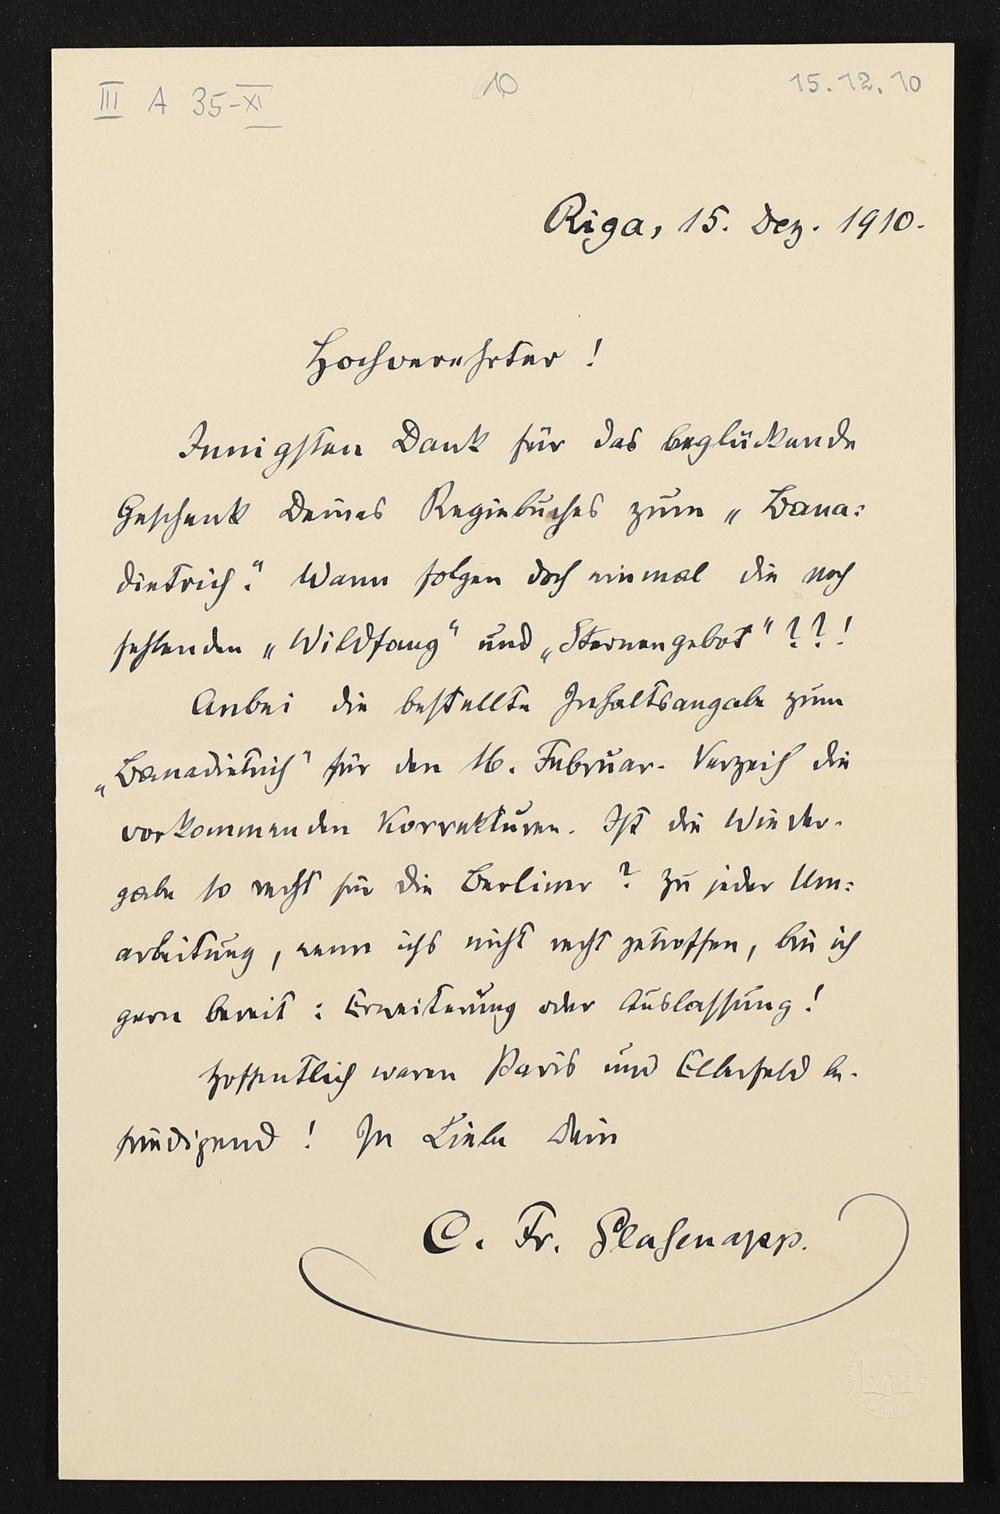 III A 35-XI
10
15.12.10
Riga, 15. Dez. 1910.
Hochverehrter!
Innigsten Dank für das beglückende
Geschenk Deines Regiebuches zum „Bana=
dietrich“. Wann folgen doch einmal die noch
fehlenden „Wildfang“ und „Sternengebot“??!
Anbei die bestellte Inhaltsangabe zum
„Banadietrich“ für den 16. Februar. Verzeih die
vorkommenden Korrekturen. Ist die Wieder-
gabe so recht für die Berliner? Zu jeder Um=
arbeitung, wenn ichs nicht recht getroffen, bin ich
gern bereit: Erweiterung oder Auslassung!
Hoffentlich waren Paris und Elberfeld be-
friedigend! In Liebe Dein
C. Fr. Glasenapp.